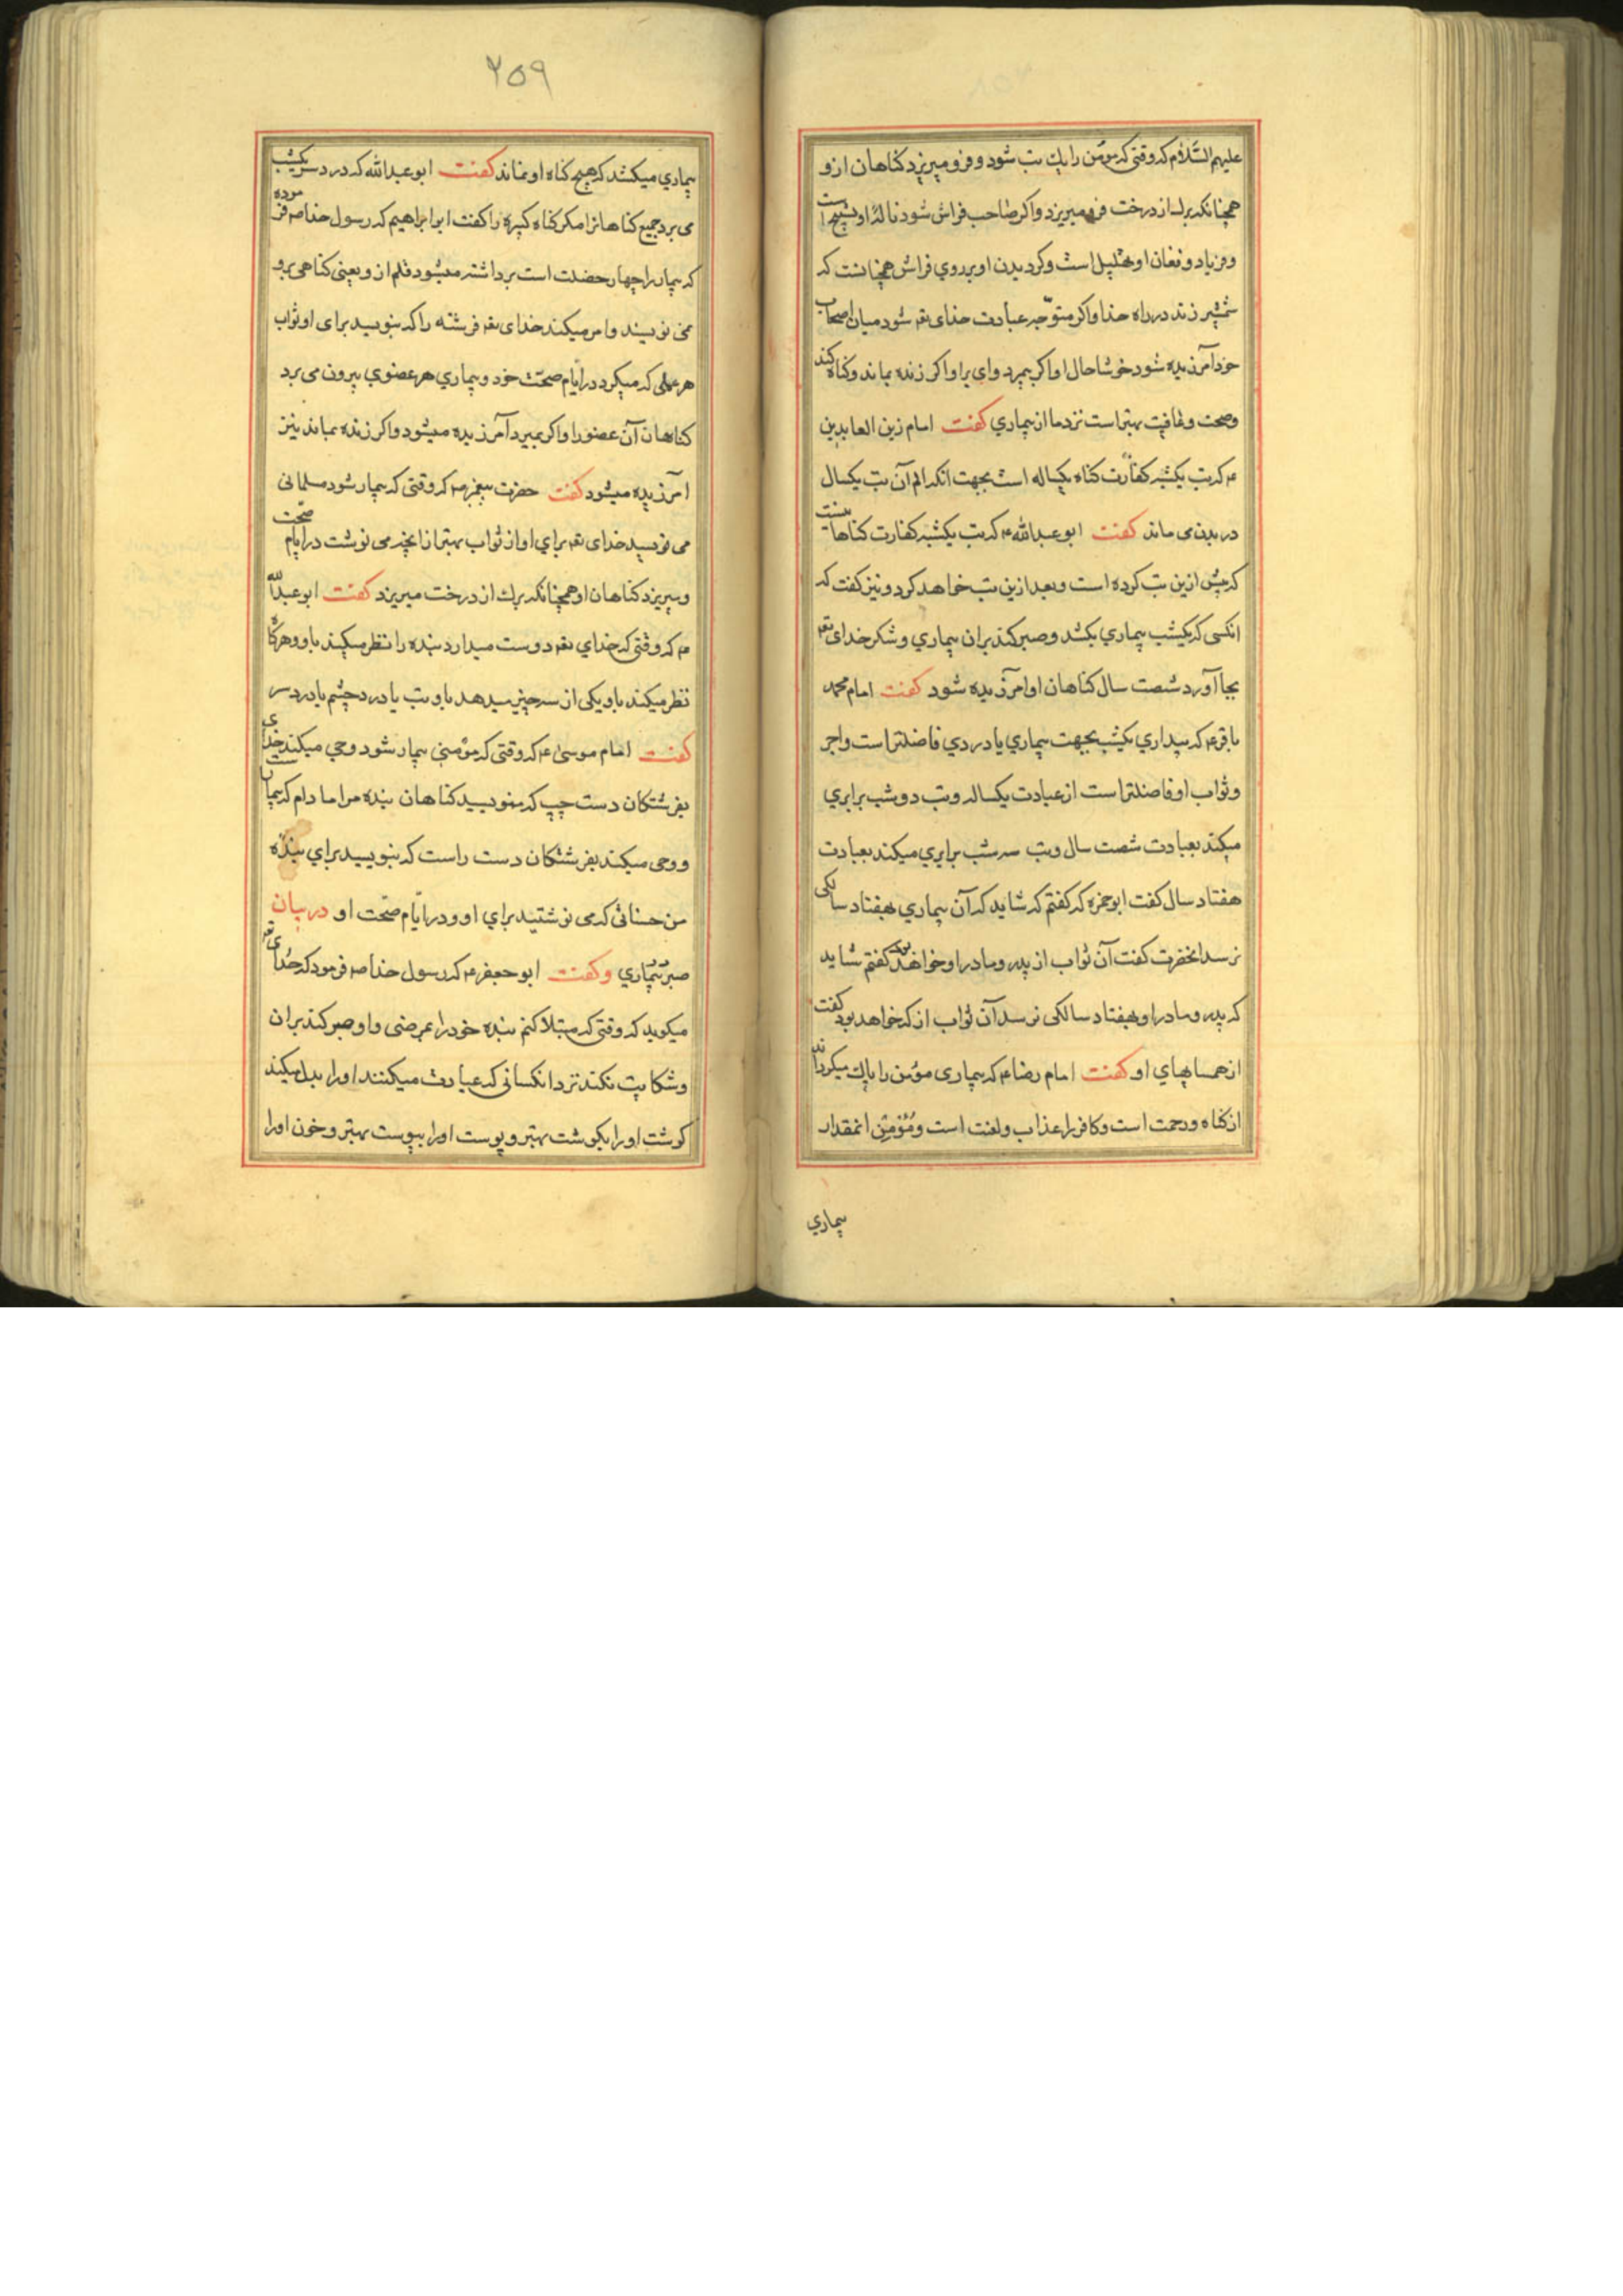 علیهم السّلام که وقتی که مؤمن را یك تب شود و فرو میریزد کناهان ازو
همچنانکه برك از درخت فرو میریزد و اکر صاحب فراش شود نالهٔ او تسبیح است
و فریاد و فغان او تهلیل است و کردیدن او بر روي فراش همچنانست که
شمشیر زند در راه خدا و اکر متوجّه عبادت خدای تعه شود میان اصحاب
خود آمرزیده شود خوشا حال او اکر بمیرد و وای بر او اکر زنده بماند و کناه کند
و صحت و عافیت بهتر است نزد ما از بیماري کفت امام زین العابدین
ع که تب یکشبه کفّارت کناه یکساله است بجهت انکه الم آن تب یکسال
در بدن می ماند کفت ابو عبدالله ع که تب یکشبه کفارت کناها نیست
که پیش ازین تب کرده است و بعد ازین تب خواهد کرد و نیز کفت که
انکسی که یکشب بیماري بکشد و صبر کند بران بیماري و شکر خدای تعه
بجا آورد شصت سال کناهان او آمرزیده شود کفت امام محمد
باقر ع که بیداري یکشب بجهت بیماري یا دردي فاضلتر است و اجر
و ثواب او فاضلتر است از عبادت یکساله و تب دو شب برابري
میکند بعبادت شصت سال و تب سه شب برابري میکند بعبادت
هفتاد سال کفت ابو حمزه که کفتم که شاید که آن بیماري بهفتاد سالکی
نرسد انحضرت کفت آن ثواب از پدر و مادر او خواهد بود کفتم شاید
که پدر و مادر او بهفتاد سالکی نرسد آن ثواب از که خواهد بود کفت
از همسایهاي او کفت امام رضا ع که بیماری مؤمن را پاك میکرداند
از کناه و رحمت است و کافر را عذاب و لعنت است و مؤمن انمقدار
بیماري
۲۵۹
بیماري میکشد که هیچ کناه او نماند کفت ابو عبدالله که درد سر یکشب
می برد جمیع کناهانرا مکر کناه کبیره را کفت ابو ابراهیم که رسول خدا صه فرموده
که بیمار را چهار خصلت است برداشته میشود قلم ازو یعنی کناهی برو
نمی نویسند و امر میکند خدای تعه فرشته را که بنویسید برای او ثواب
هر عملی که میکرد در ایّام صحّت خود و بیماري هر عضوي بیرون می برد
کناهان آن عضو را و اکر بمیرد آمرزیده میشود و اکر زنده بماند نیز
امرزیده میشود کفت حضرت پیغمبر صه که وقتی که بیمار شود مسلمانی
می نویسد خدای تعه براي او از ثواب بهتر از انچه می نوشت در ایام صحّت
و میریزد کناهان او همچنانکه برك از درخت میریزد کفت ابو عبدالله
ع که وقتی که خداي تعه دوست میدارد بنده را نظر میکند باو و هرکاه
نظر میکند باو یکی از سه چیز میدهد باو تب یا درد چشم یا درد سر
کفت امام موسیٰ ع که وقتی که مؤمنی بیمار شود وحي میکند خدای
بفرشتکان دست چپ که ننویسید کناهان بنده مرا ما دام که بیمار است
و وحی میکند بفرشتکان دست راست که بنویسید براي بندهٔ
من حسناتی که می نوشتید براي او و در ایّام صحّت او در بیان
صبر بیماري و کفت ابو جعفر ع که رسول خدا صه فرمود که خدای تعه
میکوید که وقتی که مبتلا کنم بنده خود را بمرضی و او صبر کند بران
و شکایت نکند نزد انکسانی که عیادت میکنند او را بدل میکنم
کوشت او را بکوشت بهتر و پوست او را بپوست بهتر و خون او را